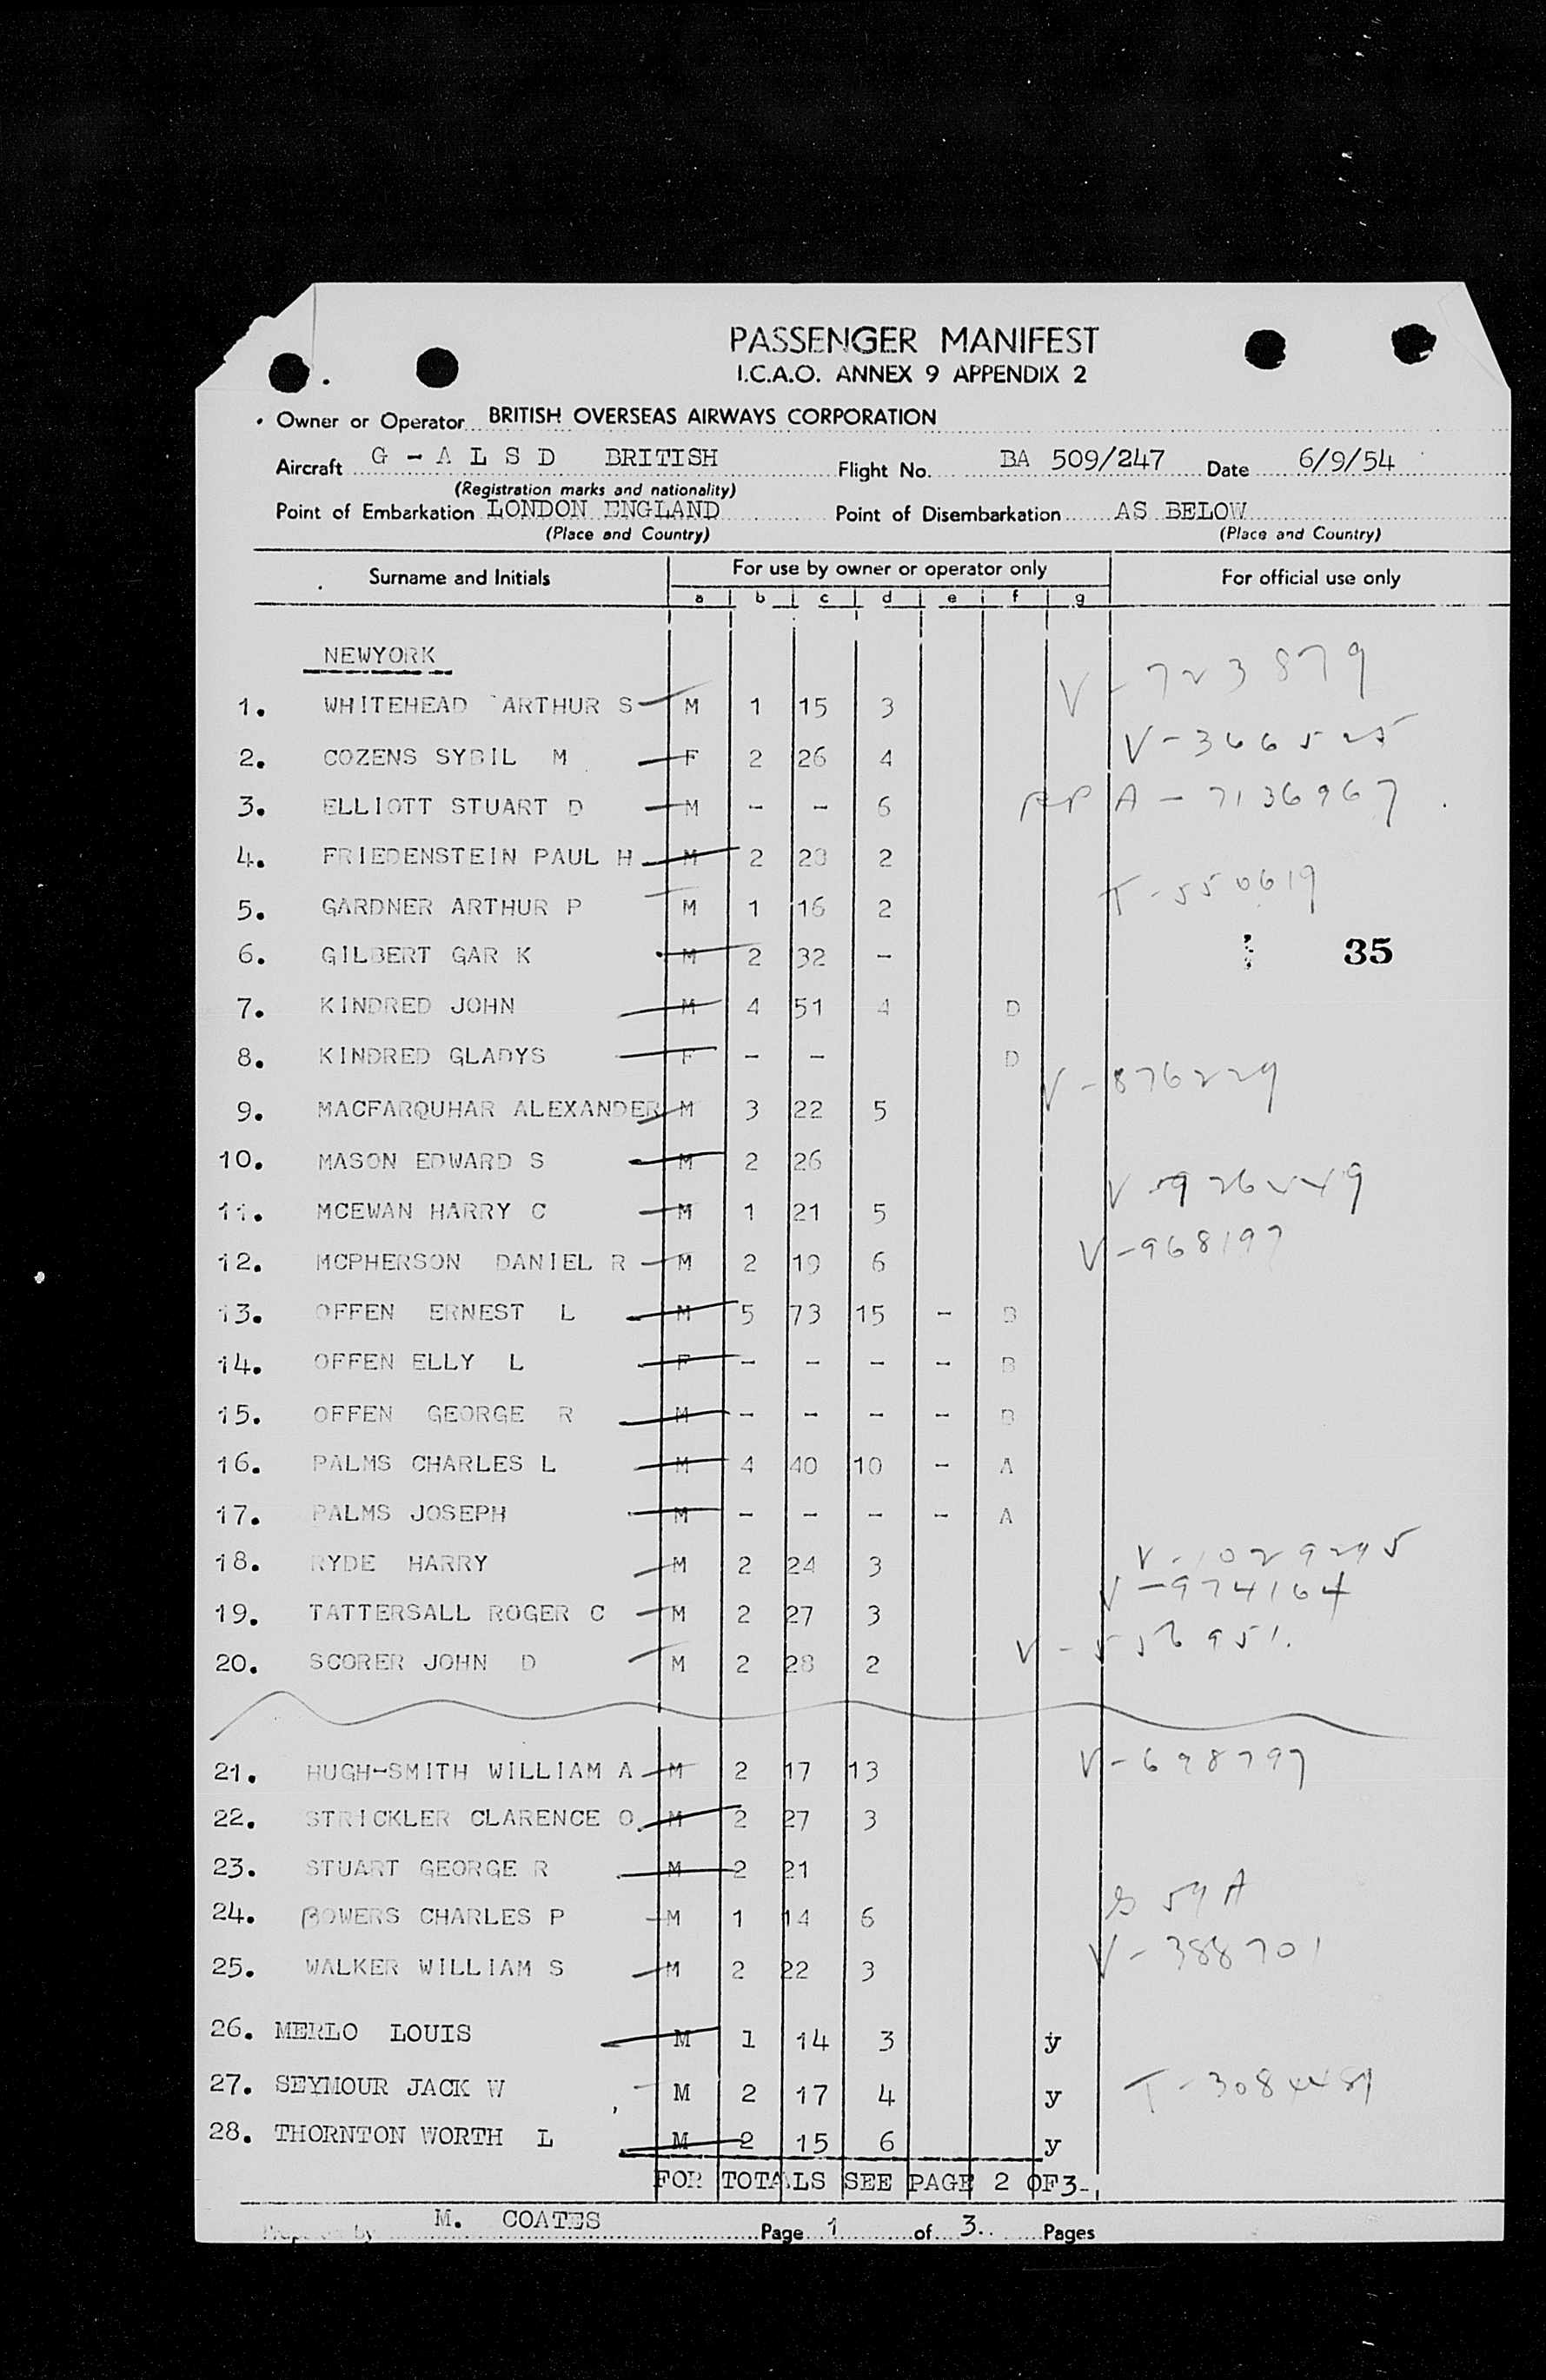 PASSENGER MANIFEST
I.C.A.O. ANNEX 9 APPENDIX 2
Owner or Operator BRITISH OVERSEAS AIRWAYS CORPORATION
Aircraft G - A L S D BRITISH Flight No. BA 509/247 Date 6/9/54
(Registration marks and nationality)
Point of Embarkation LONDON ENGLAND Point of Disembarkation AS BELOW
(Place and Country) (Place and Country)
Surname and Initials For use by owner or operator only For official use only
a b c d e f g
NEWYORK
1. WHITEHEAD ARTHUR S M 1 15 3 V-723879
2. COZENS SYBIL M F 2 26 4 V-366525
3. ELLIOTT STUART D M - - 6 A-7136967
4. FRIEDENSTEIN PAUL H M 2 28 2
5. GARDNER ARTHUR P M 1 16 2 T-550619
6. GILBERT GAR K M 2 32 - 35
7. KINDRED JOHN M 4 51 4 D
8. KINDRED GLADYS F - - D
9. MACFARQUHAR ALEXANDER M 3 22 5 V-876229
10. MASON EDWARD S M 2 26
11. MCEWAN HARRY C M 1 21 5
12. MCPHERSON DANIEL R M 2 19 6 V-968197
13. OFFEN ERNEST L M 5 73 15 - B
14. OFFEN ELLY L F - - - - B
15. OFFEN GEORGE R M - - - - B
16. PALMS CHARLES L M 4 40 10 - A
17. PALMS JOSEPH M - - - - A
18. RYDE HARRY M 2 24 3 V-1029295
19. TATTERSALL ROGER C M 2 27 3 V-974164
20. SCORER JOHN D M 2 28 2
21. HUGH-SMITH WILLIAM A M 2 17 13 V-698797
22. STRICKLER CLARENCE O. M 2 27 3
23. STUART GEORGE R M 2 21
24. BOWERS CHARLES P M 1 14 6
25. WALKER WILLIAM S M 2 22 3 V-388701
26. MERLO LOUIS M 1 14 3 y
27. SEYMOUR JACK W M 2 17 4 y
28. THORNTON WORTH L M 2 15 6 y
FOR TOTALS SEE PAGE 2 OF 3-
Prepared by M. COATES Page 1 of 3.. Pages